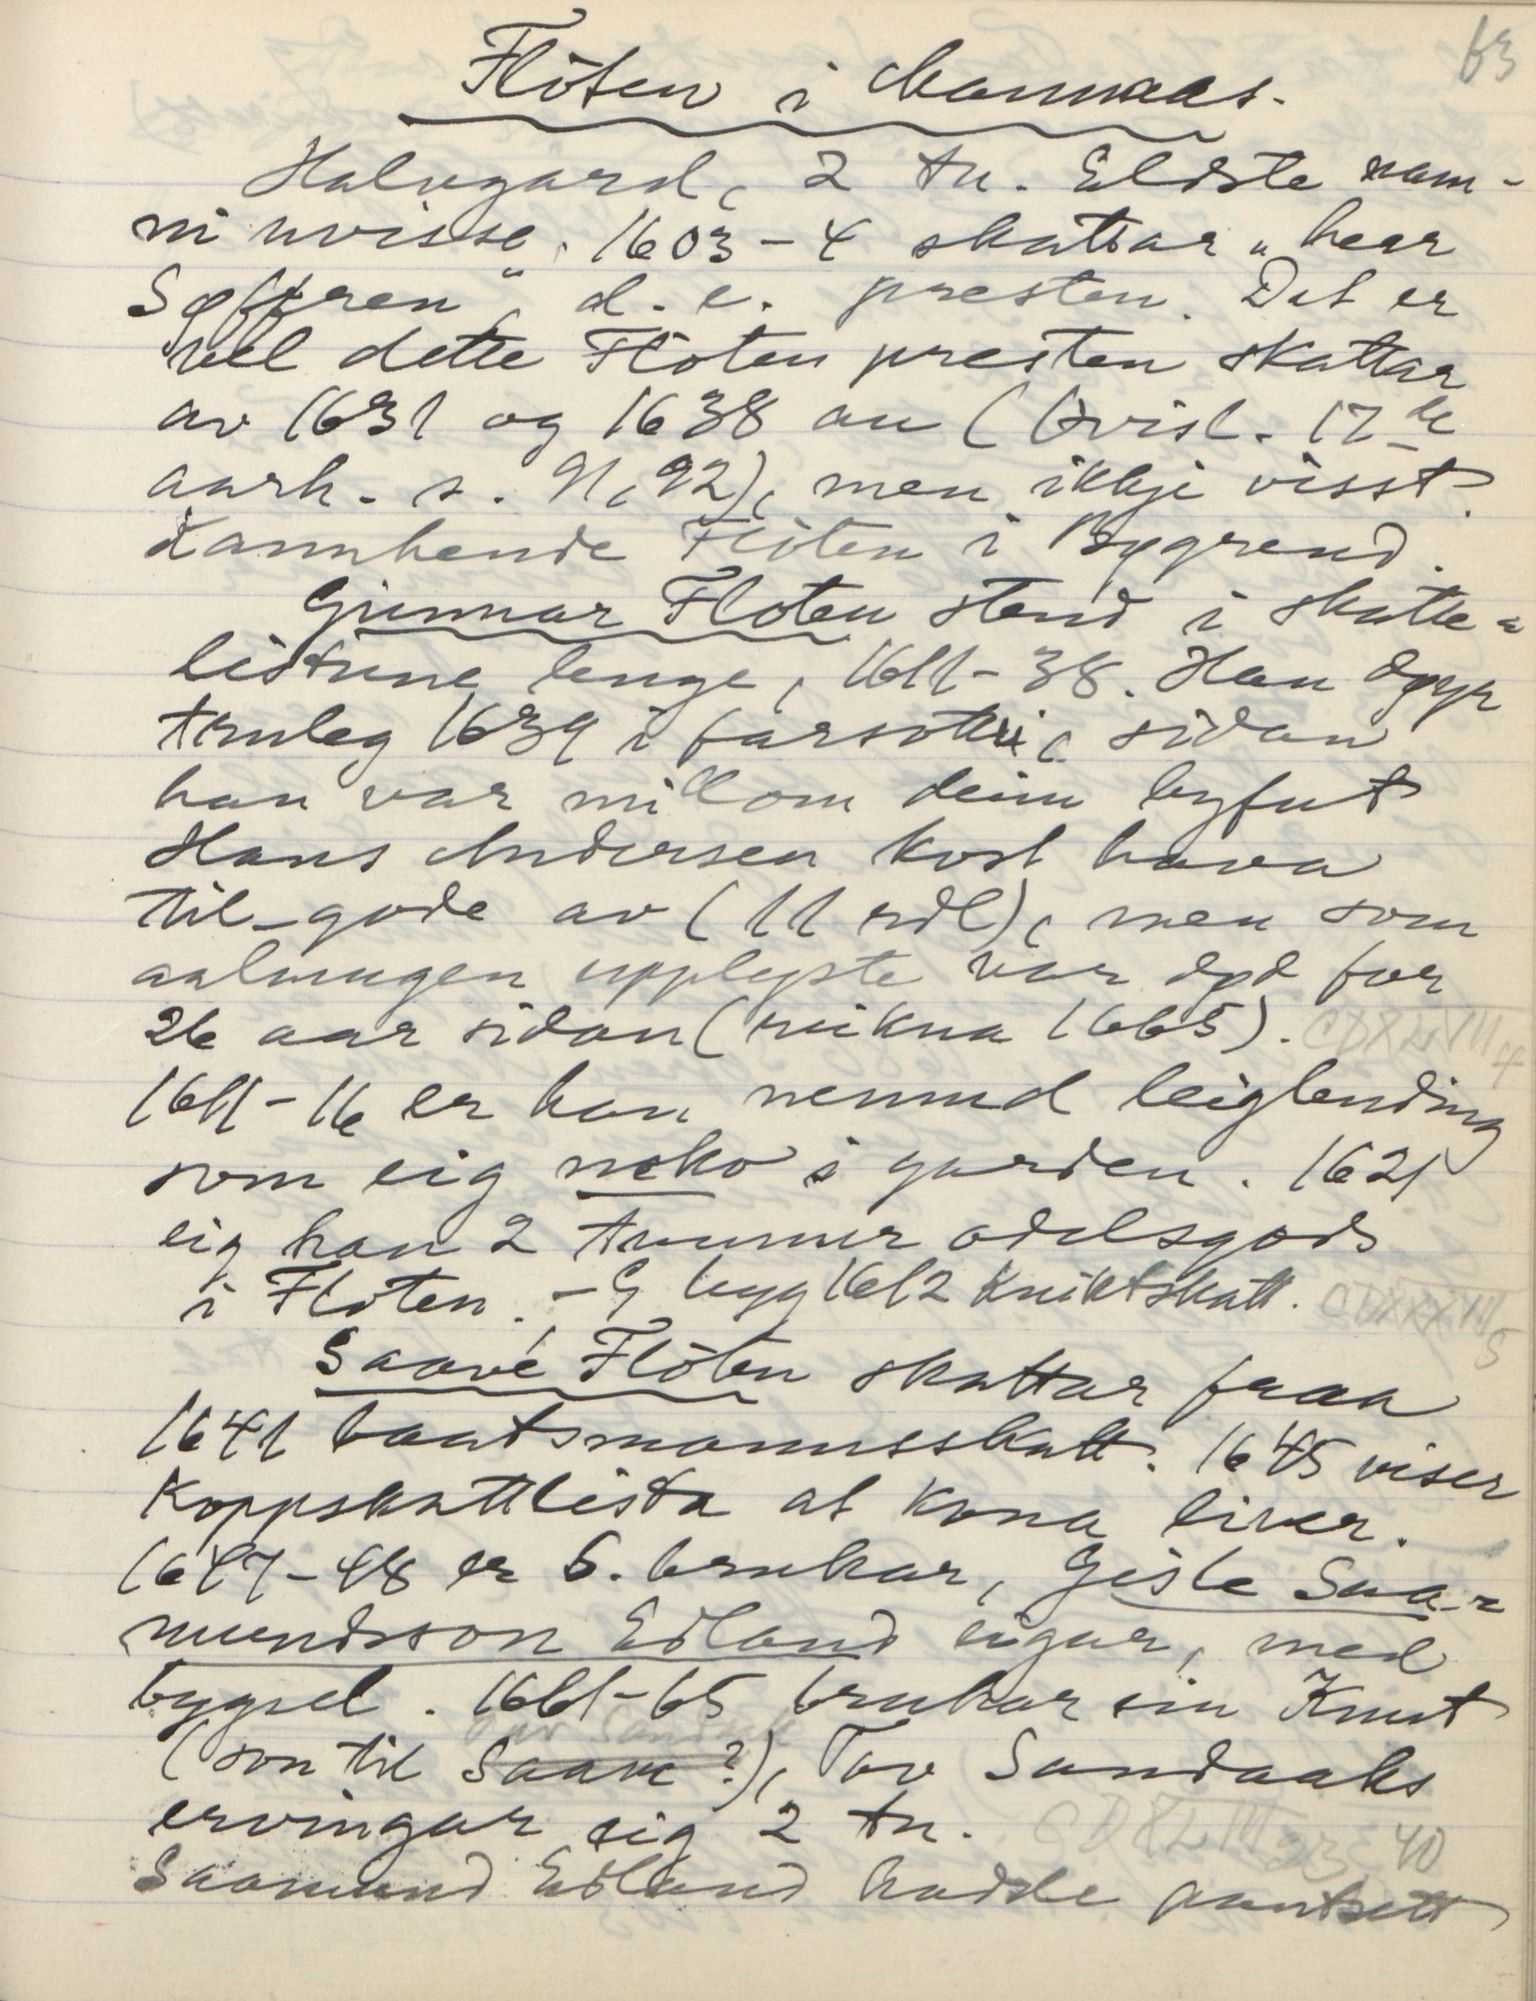 63
Flöten i Mannaas.
Halvgard, 2 tn. Eldste nam-
ni uvisse. 1603-4 skattar "hear
Søffren", d. e. presten. Det er
vel dette Flöten presten skattar
av 1631 og 1638 au (Kvisl. 17de
aarh. s. 91, 92), men ikkje visst.
Kannhende Flöten i Bygrend.
Gunnar Flöten stend i skatte-
listune lenge, 1611-38. Han døyr
truleg 1639 i farsotti, sidan
han var millom deim byfut
Hans Andersen Kost hava
til-gode av (11 rdl), men som
aalmugen upplyste var död for
26 aar sidan (reikna 1665). CDXLVIII 4
1611-16 er han nemnd leiglending
som eig noko i garden. 1621
eig han 2 tunnur odelsgods
i Flöten. - G bygg 1612 Kniktskatt. CDXXXVIII 5
Saave Flöten skattar fraa
1641 baatsmannsskatt. 1645 viser
Koppskattlista at kona liver.
1647-48 er S. brukar, Gisle Saa-
mundsson Edland eigar, med
bygsel. 1661-65 brukar ein Knut
(son til Saave?), Tov Sandaaks
ervingar eig 2 tn. CDXLIII 23, 40
Saamund Edland hadde pantsett